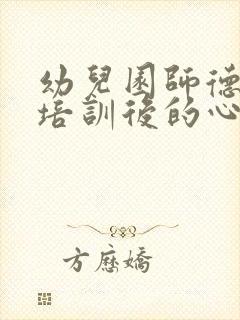 幼兒園師德
培訓後的心
方應嬌